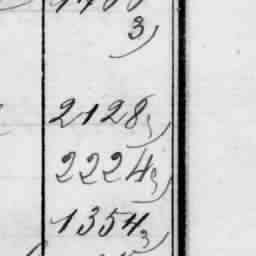 3)
2128 3)
2224 3)
1354 3)